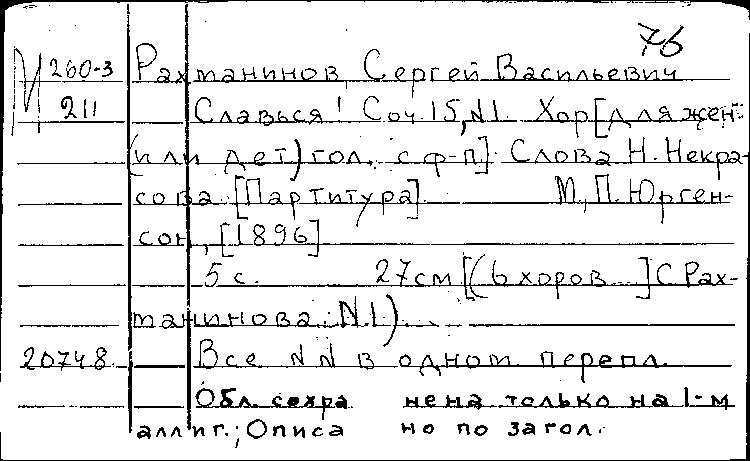 76
М 260-3 Рахманинов, Сергей Васильевич
211 Славься! Соч. 15, N1. Хор [для жен.
(или дет.) гол. с ф-п]. Слова Н. Некра-
сова. [Партитура]. М., П. Юрген-
сон, [1896]
5 с. 27см [(6 хоров ...] С Рах-
манинова. N.1).
20748 Все NN в одном перепл.
Обл. сохра нена только на 1-м
аллиг.; Описа но по загол.